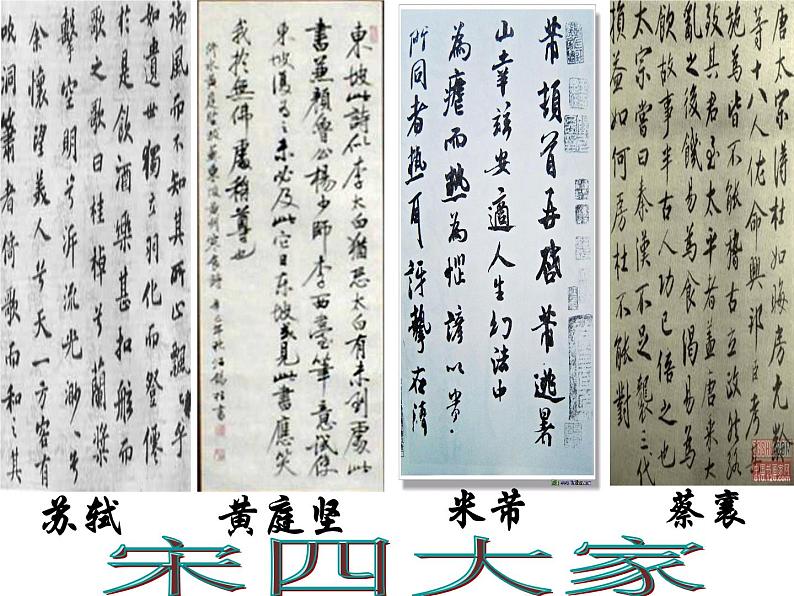 御風而不知其所止飄〻乎
如遺世獨立羽化而登僊
於是飲酒樂甚扣舷而
歌之歌曰桂棹兮蘭槳
擊空明兮泝流光渺〻兮
余懷望美人兮天一方客有
吹洞簫者倚歌而和之其
東坡此詩似李太白猶恐太白有未到處此
書兼顏魯公楊少師李西臺筆意試使
東坡復為之未必及此它日東坡或見此書應笑
我於無佛處稱尊也
芾頓首再啓芾逃暑
山幸兹安適人生幻法中
為瘧而熱為惱諺以貴
所同者熱耳訝摯在清
唐太宗得杜如晦房元齡
等十八人佐命興邦臣考
施為皆不能稽古立政然
致其君至太平者蓋唐承大
亂之後饑易為食渴易為
飲故事半古人功已倍之也
太宗嘗曰秦漢不足襲三代
損益如何房杜不能對
苏轼
黄庭坚
米芾
蔡襄
宋四大家